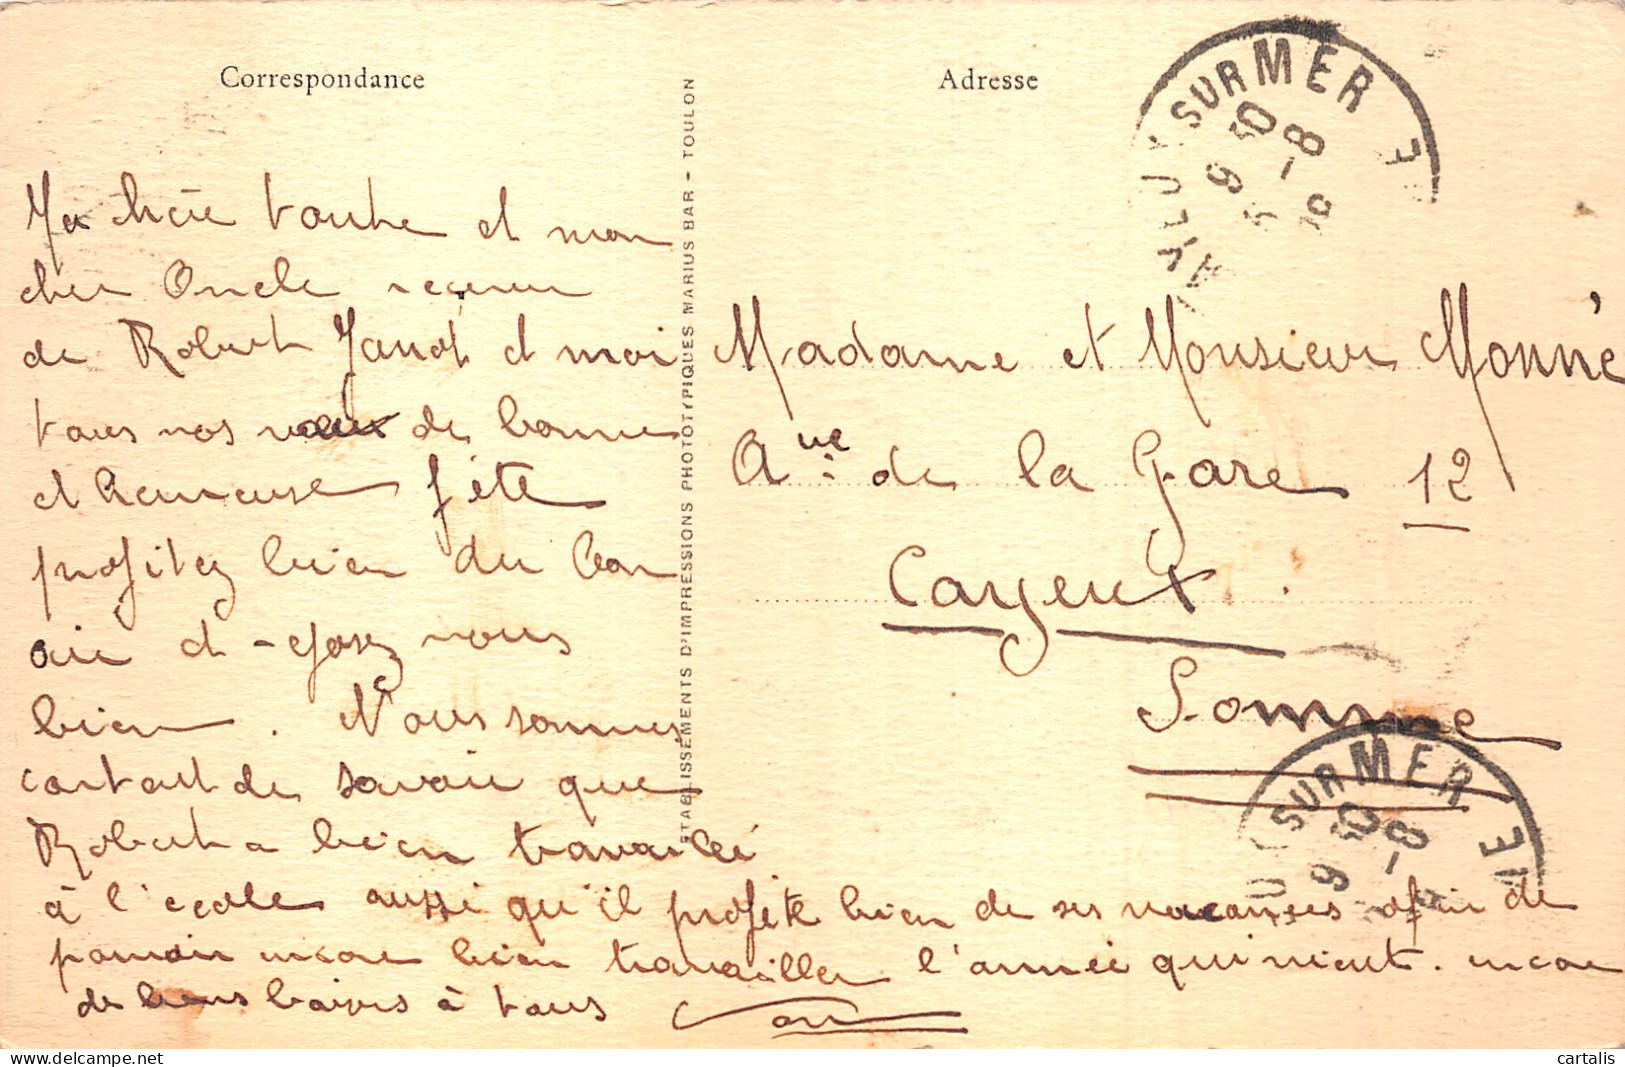 Correspondance
Ma chère tante et mon
cher Oncle recever
de Robert Janot et moi
tous nos vœux de bonne
et heureuse fête
profitez bien du bon
air et reposez vous
bien. Nous sommes
content de savoir que
Robert a bien travaillé
à l'école aussi qu'il profite bien de ses vacances afin de
pouvoir encore bien travailler l'année qui vient. encore
de bons baisers à tous
ETABLISSEMENTS D'IMPRESSIONS PHOTOTYPIQUES MARIUS BAR - TOULON
Adresse
SUR MER
Madame et Monsieur Monné
Ave de la Gare 12
Cayeux
Somme
SUR MER
cartalis